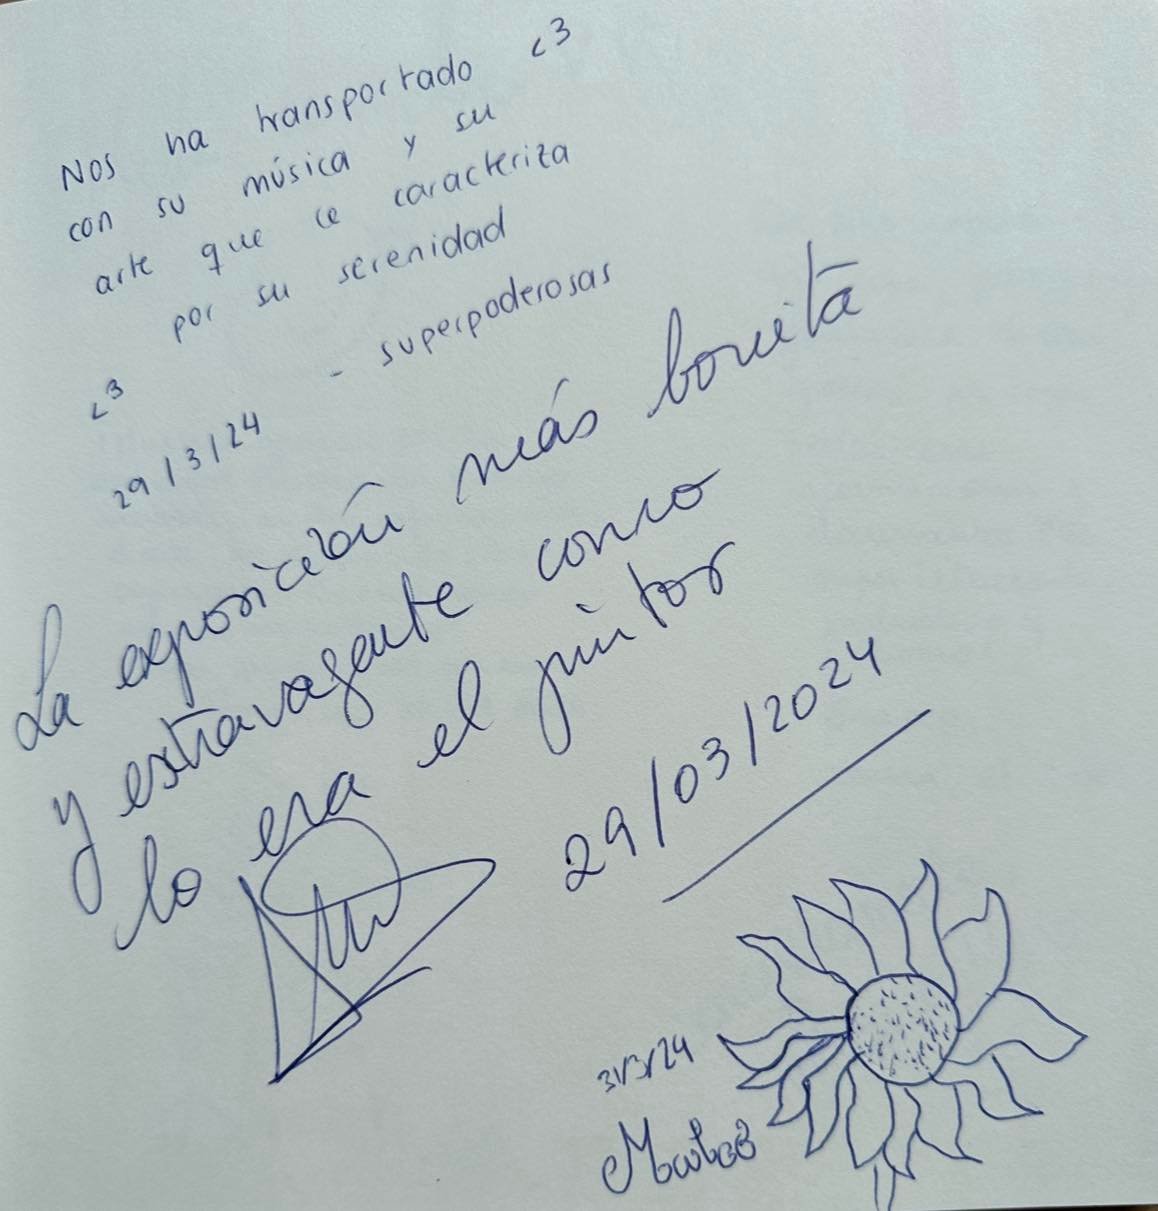 Nos ha transportado <3
con su música y su
arte que le caracteriza
por su serenidad
- superpoderosas
<3
29/3/24
La exposición más bonita
y extravagante como
lo era el pintor
29/03/2024
31/3/24